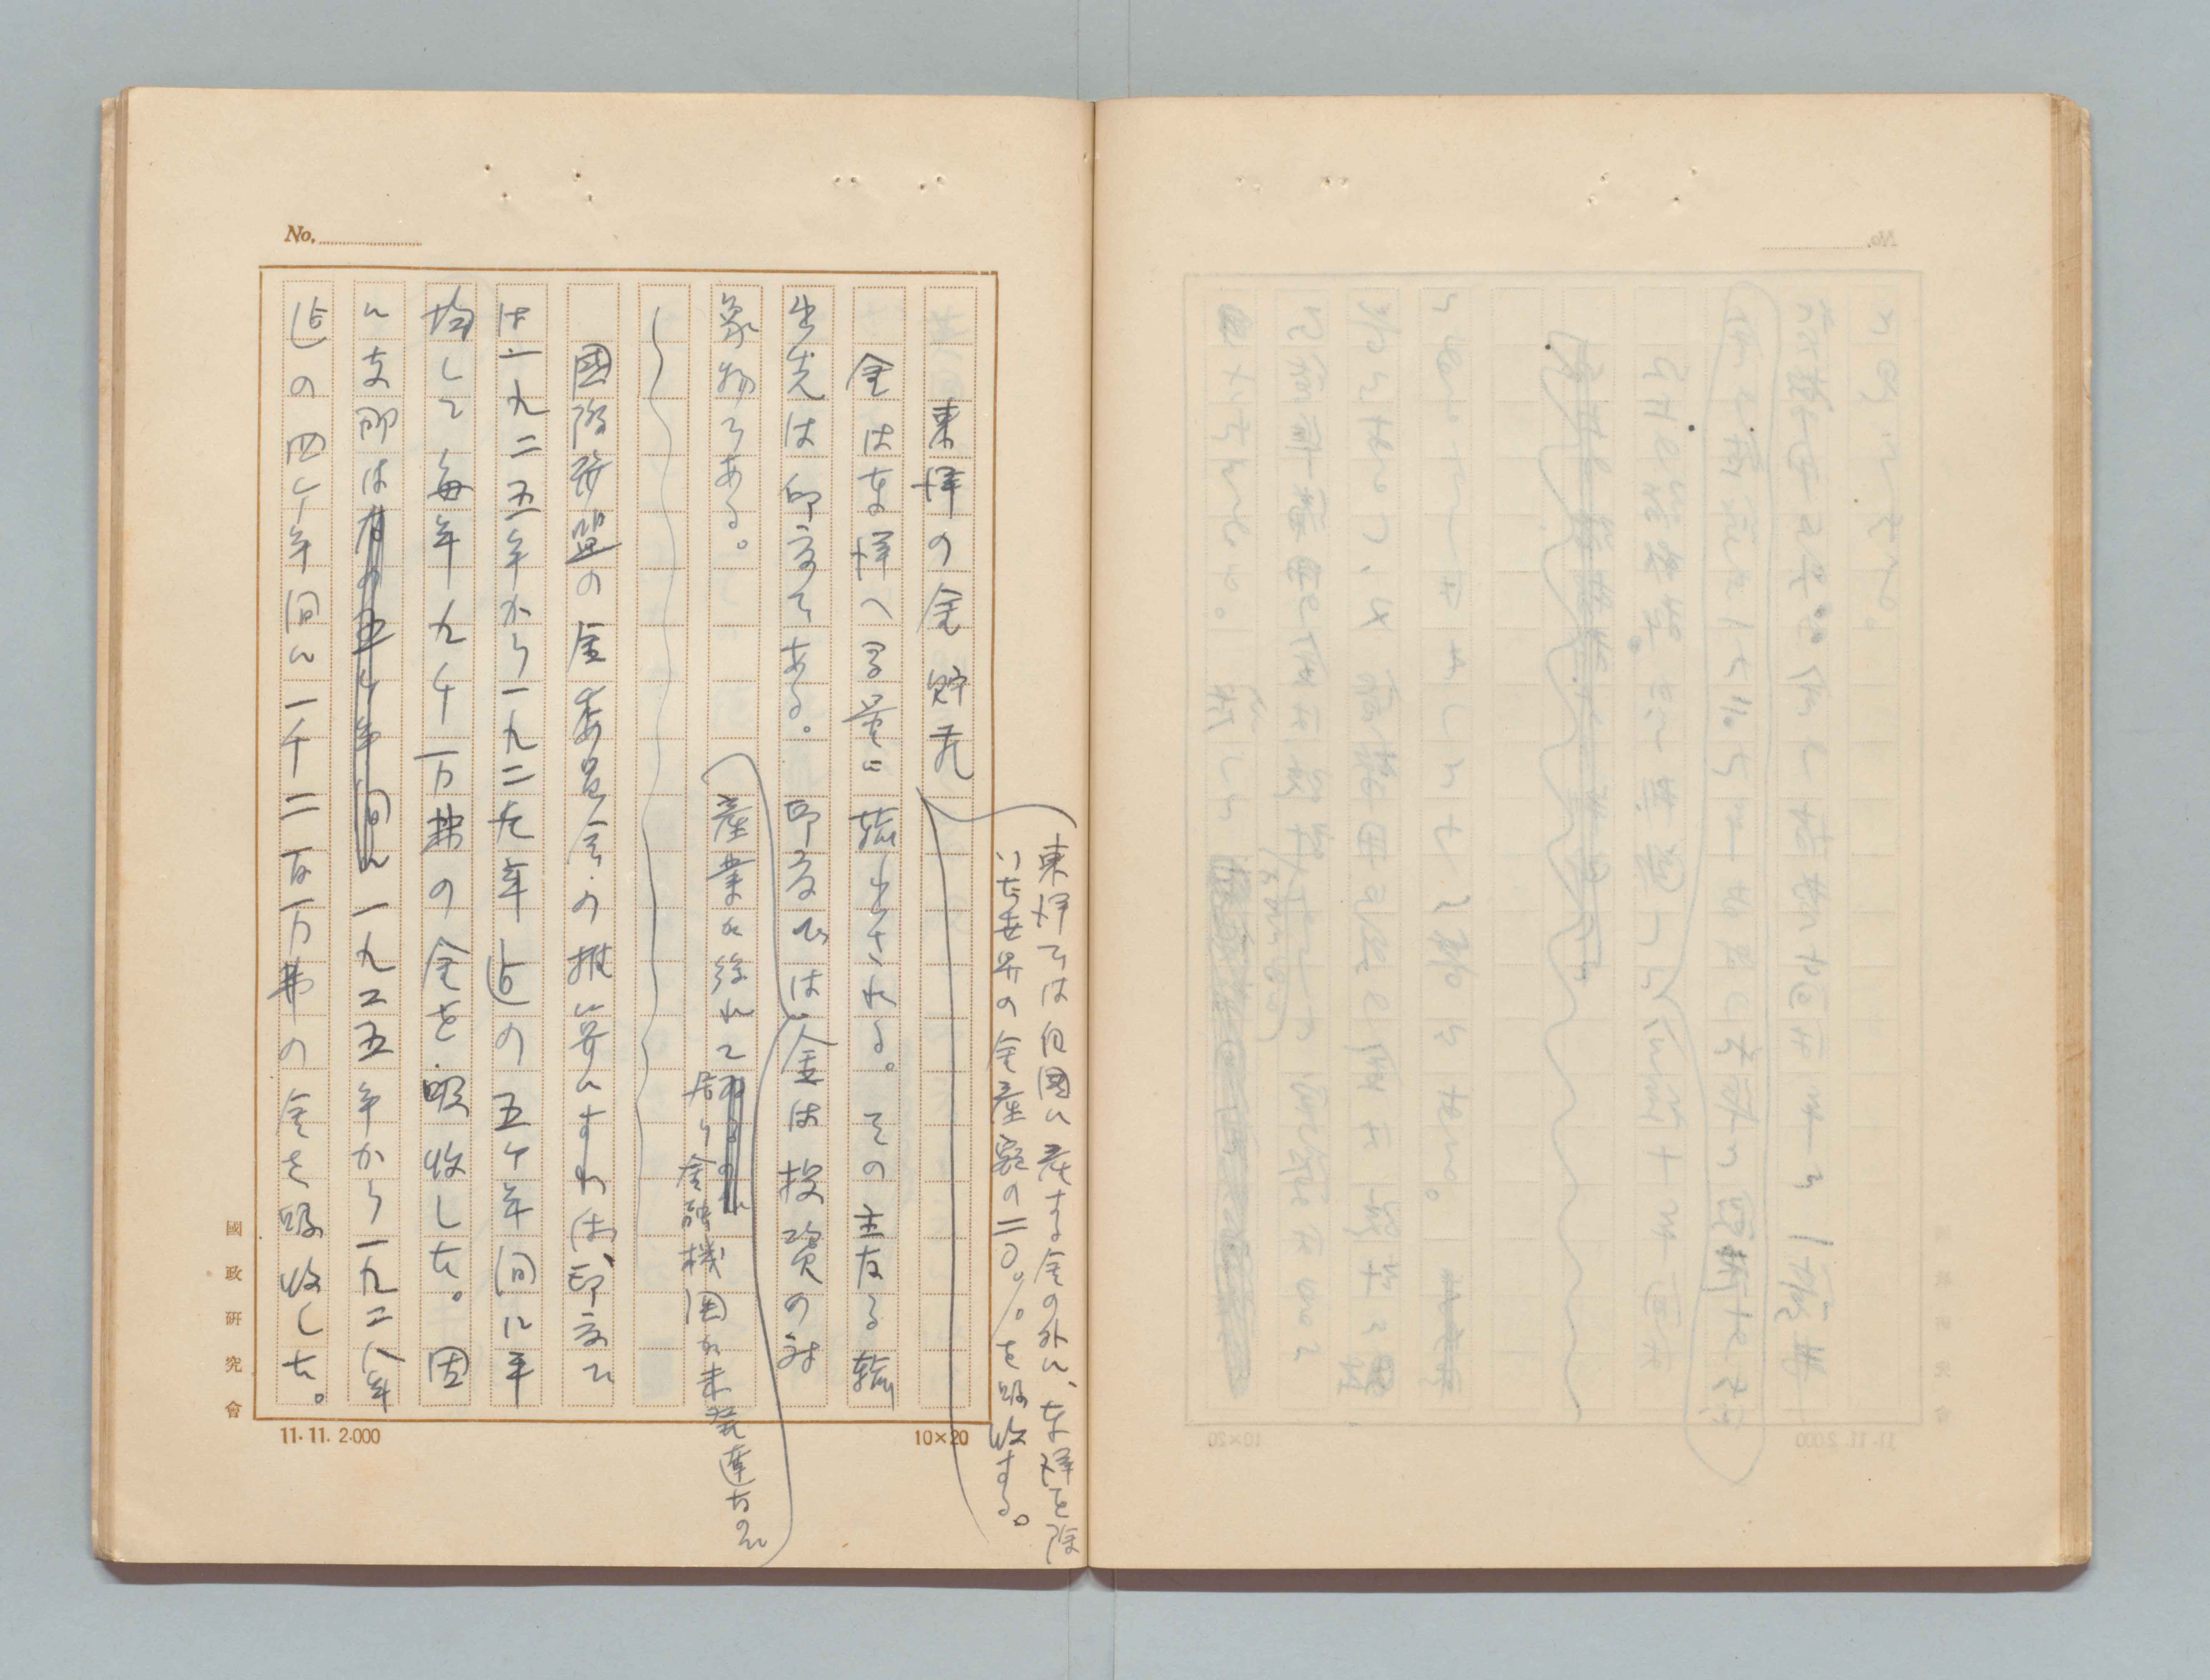 No.
東洋の金貯蔵
東洋では自国に産する金の外に、東洋を除
いた世界の金産額の二〇%を吸収する。
金は東洋へ多量に輸出される。その主なる輸
出先は印度である。印度では金は投資の対
象物である。
産業が後れて
居り金融機関が未発達なのに
國際聯盟の金委員会の推算によれば、印度で
は一九二五年から一九二九年迄の五ケ年間に平
均して毎年九千一万弗の金を吸収した。因
に支那は 一九二五年から一九二八年
迄の四ケ年間に一千二百一万弗の金を吸収した。
國政研究會
11.11.2.000
10×20